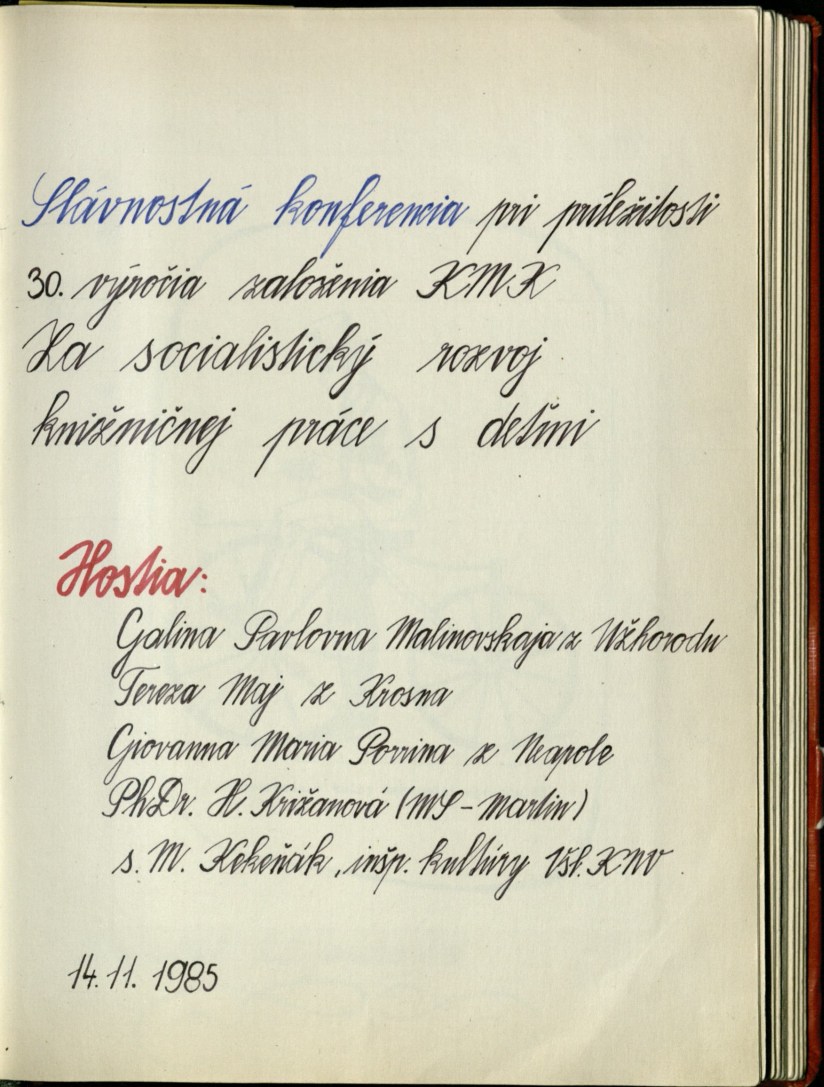 Slávnostná konferencia pri príležitosti
30. výročia založenia KMK
Za socialistický rozvoj
knižničnej práce s deťmi
Hostia:
Galina Pavlovna Malinovskaja z Užhorodu
Tereza Maj z Krosna
Giovanna Maria Porrina z Neapole
PhDr. H. Križanová (MS - Martin)
s. M. Kekeňák, inšp. kultúry Vsl. KNV
14. 11. 1985